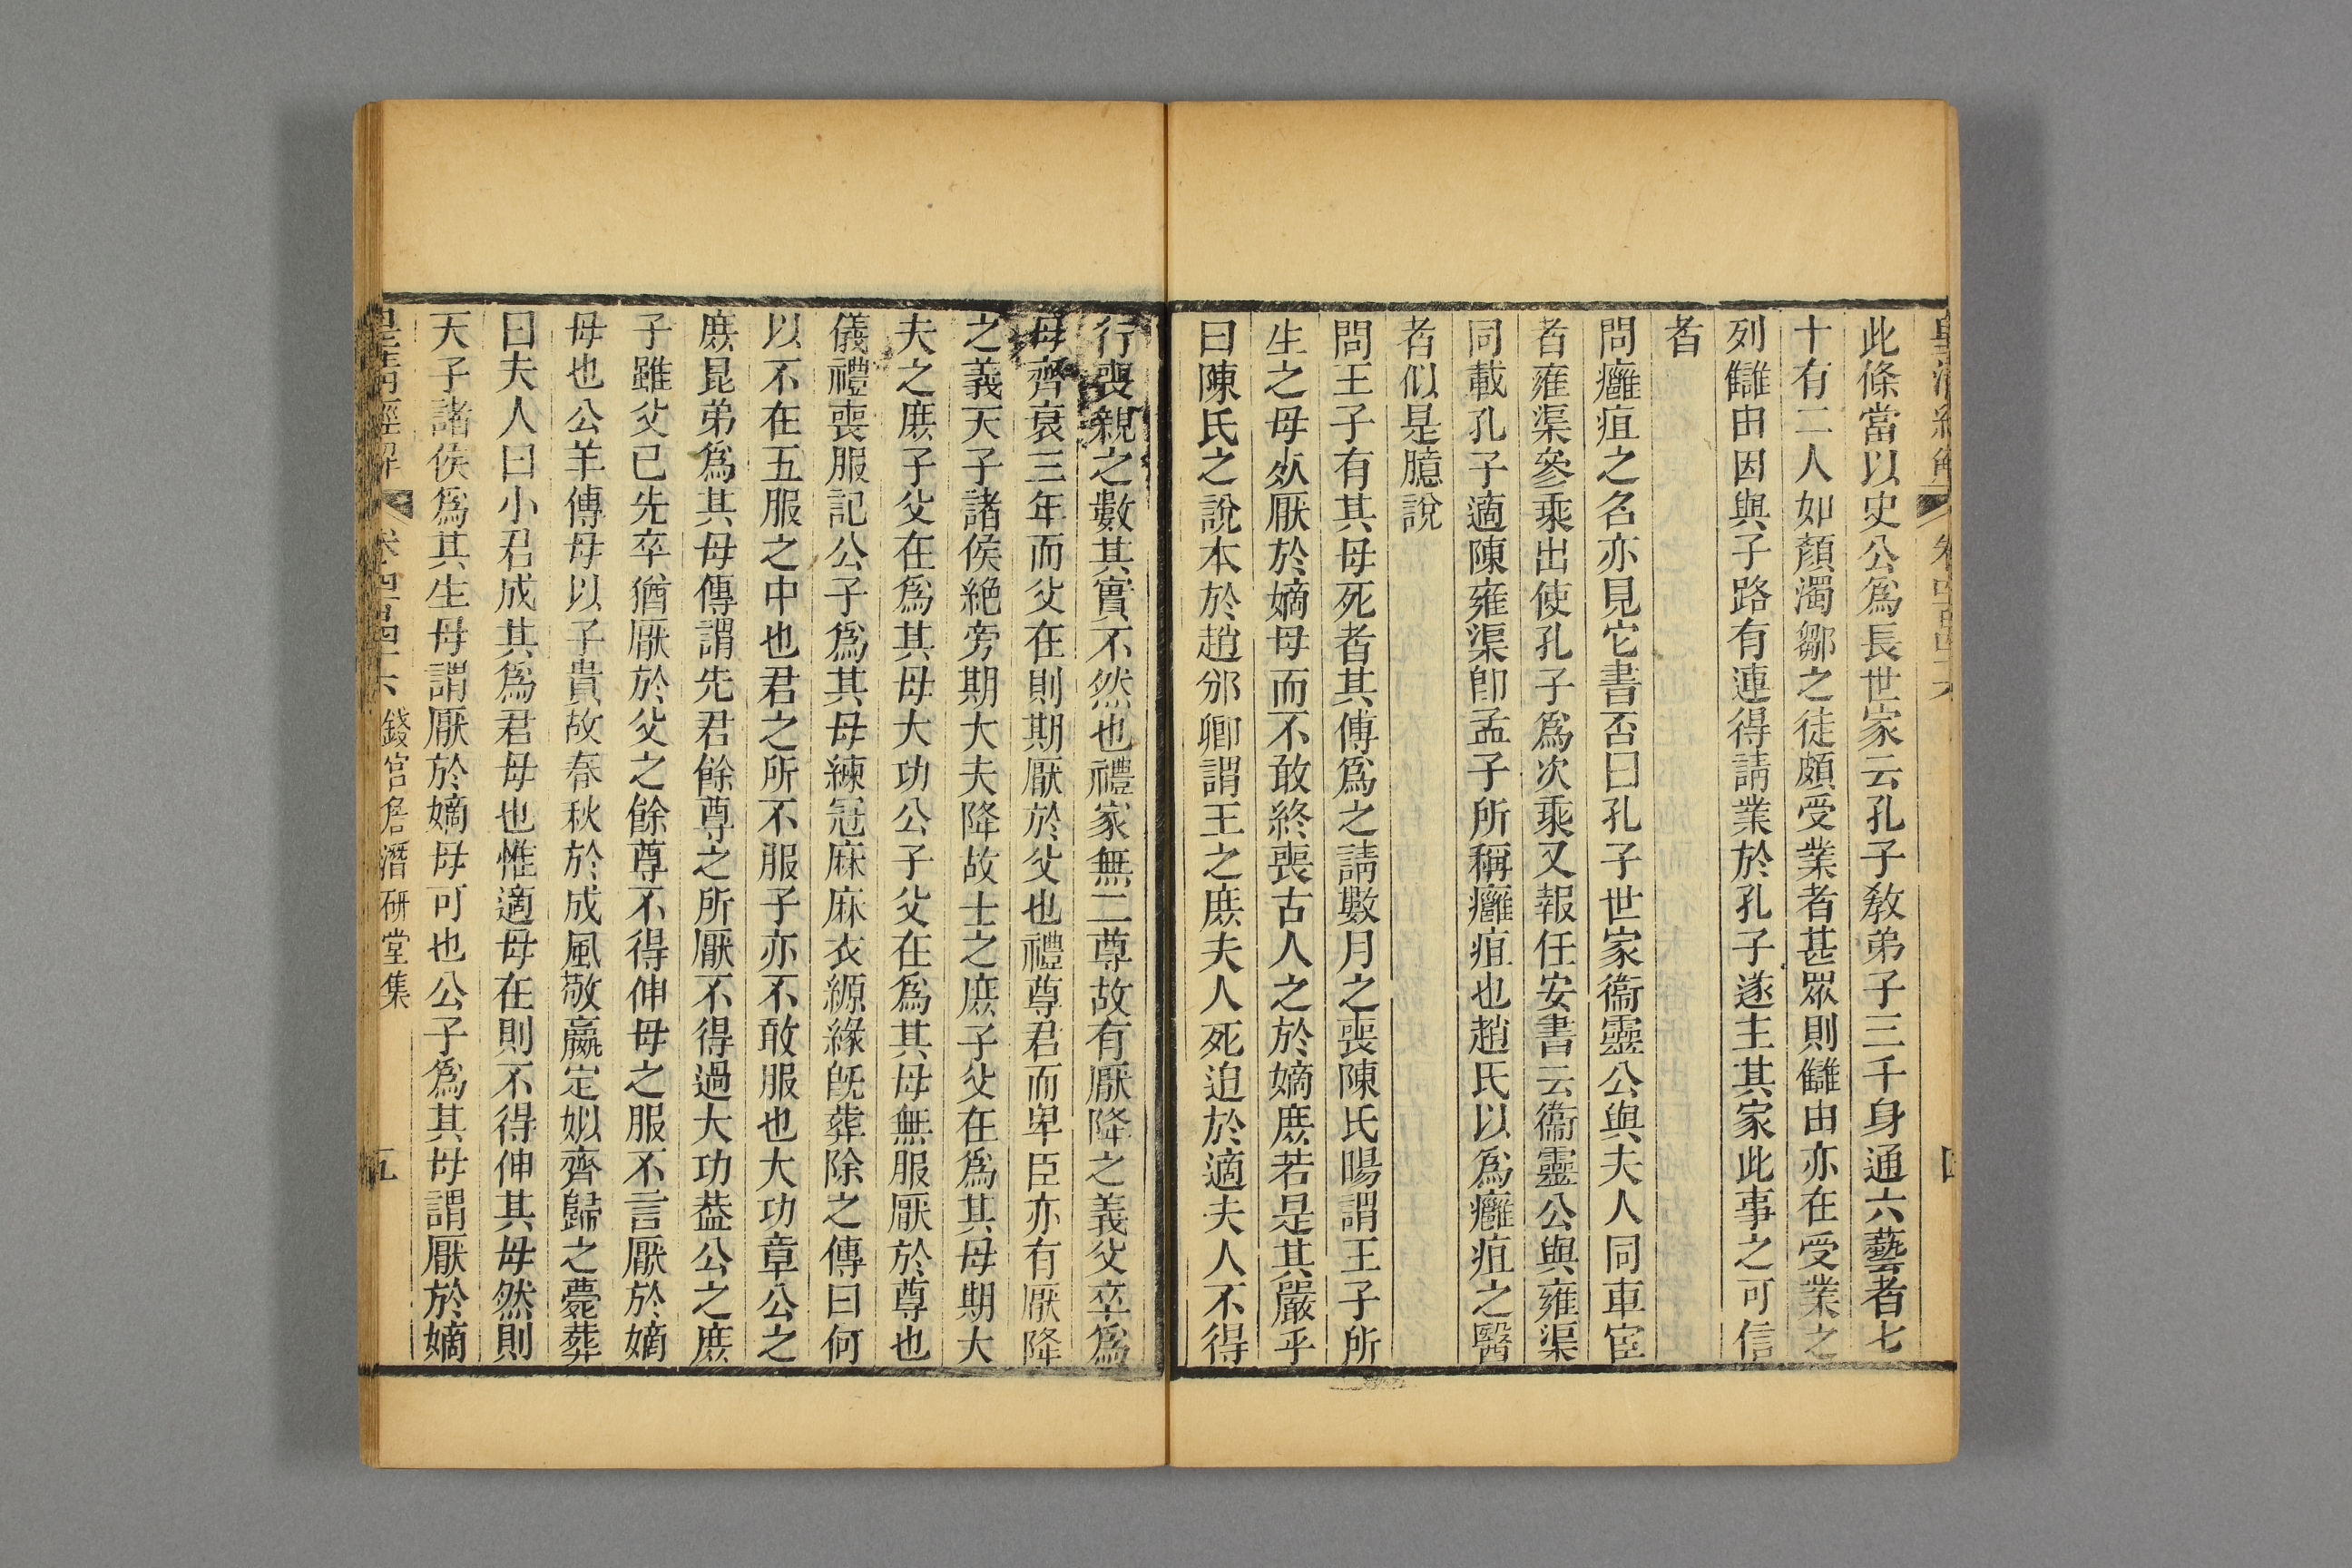 皇清經解 卷四百四十六 四
此條當以史公爲長世家云孔子教弟子三千身通六藝者七
十有二人如顏濁鄒之徒頗受業者甚眾則讎由亦在受業之
列讎由因與子路有連得請業於孔子遂主其家此事之可信
者
問癰疽之名亦見它書否曰孔子世家衞靈公與夫人同車宦
者雍渠參乘出使孔子爲次乘又報任安書云衞靈公與雍渠
同載孔子適陳雍渠卽孟子所稱癰疽也趙氏以爲癰疽之醫
者似是臆說
問王子有其母死者其傅爲之請數月之喪陳氏暘謂王子所
生之母死厭於嫡母而不敢終喪古人之於嫡庶若是其嚴乎
曰陳氏之說本於趙邠卿謂王之庶夫人死迫於適夫人不得
行喪親之數其實不然也禮家無二尊故有厭降之義父卒爲
母齊衰三年而父在則期厭於父也禮尊君而卑臣亦有厭降
之義天子諸侯絶旁期大夫降故士之庶子父在爲其母期大
夫之庶子父在爲其母大功公子父在爲其母無服厭於尊也
儀禮喪服記公子爲其母練冠麻麻衣縓緣旣葬除之傳曰何
以不在五服之中也君之所不服子亦不敢服也大功章公之
庶昆弟爲其母傳謂先君餘尊之所厭不得過大功葢公之庶
子雖父已先卒猶厭於父之餘尊不得伸母之服不言厭於嫡
母也公羊傳母以子貴故春秋於成風敬嬴定姒齊歸之薨葬
曰夫人曰小君成其爲君母也惟適母在則不得伸其母然則
天子諸侯爲其生母謂厭於嫡母可也公子爲其母謂厭於嫡
皇清經解 卷四百四十六 錢宮詹潛研堂集 五